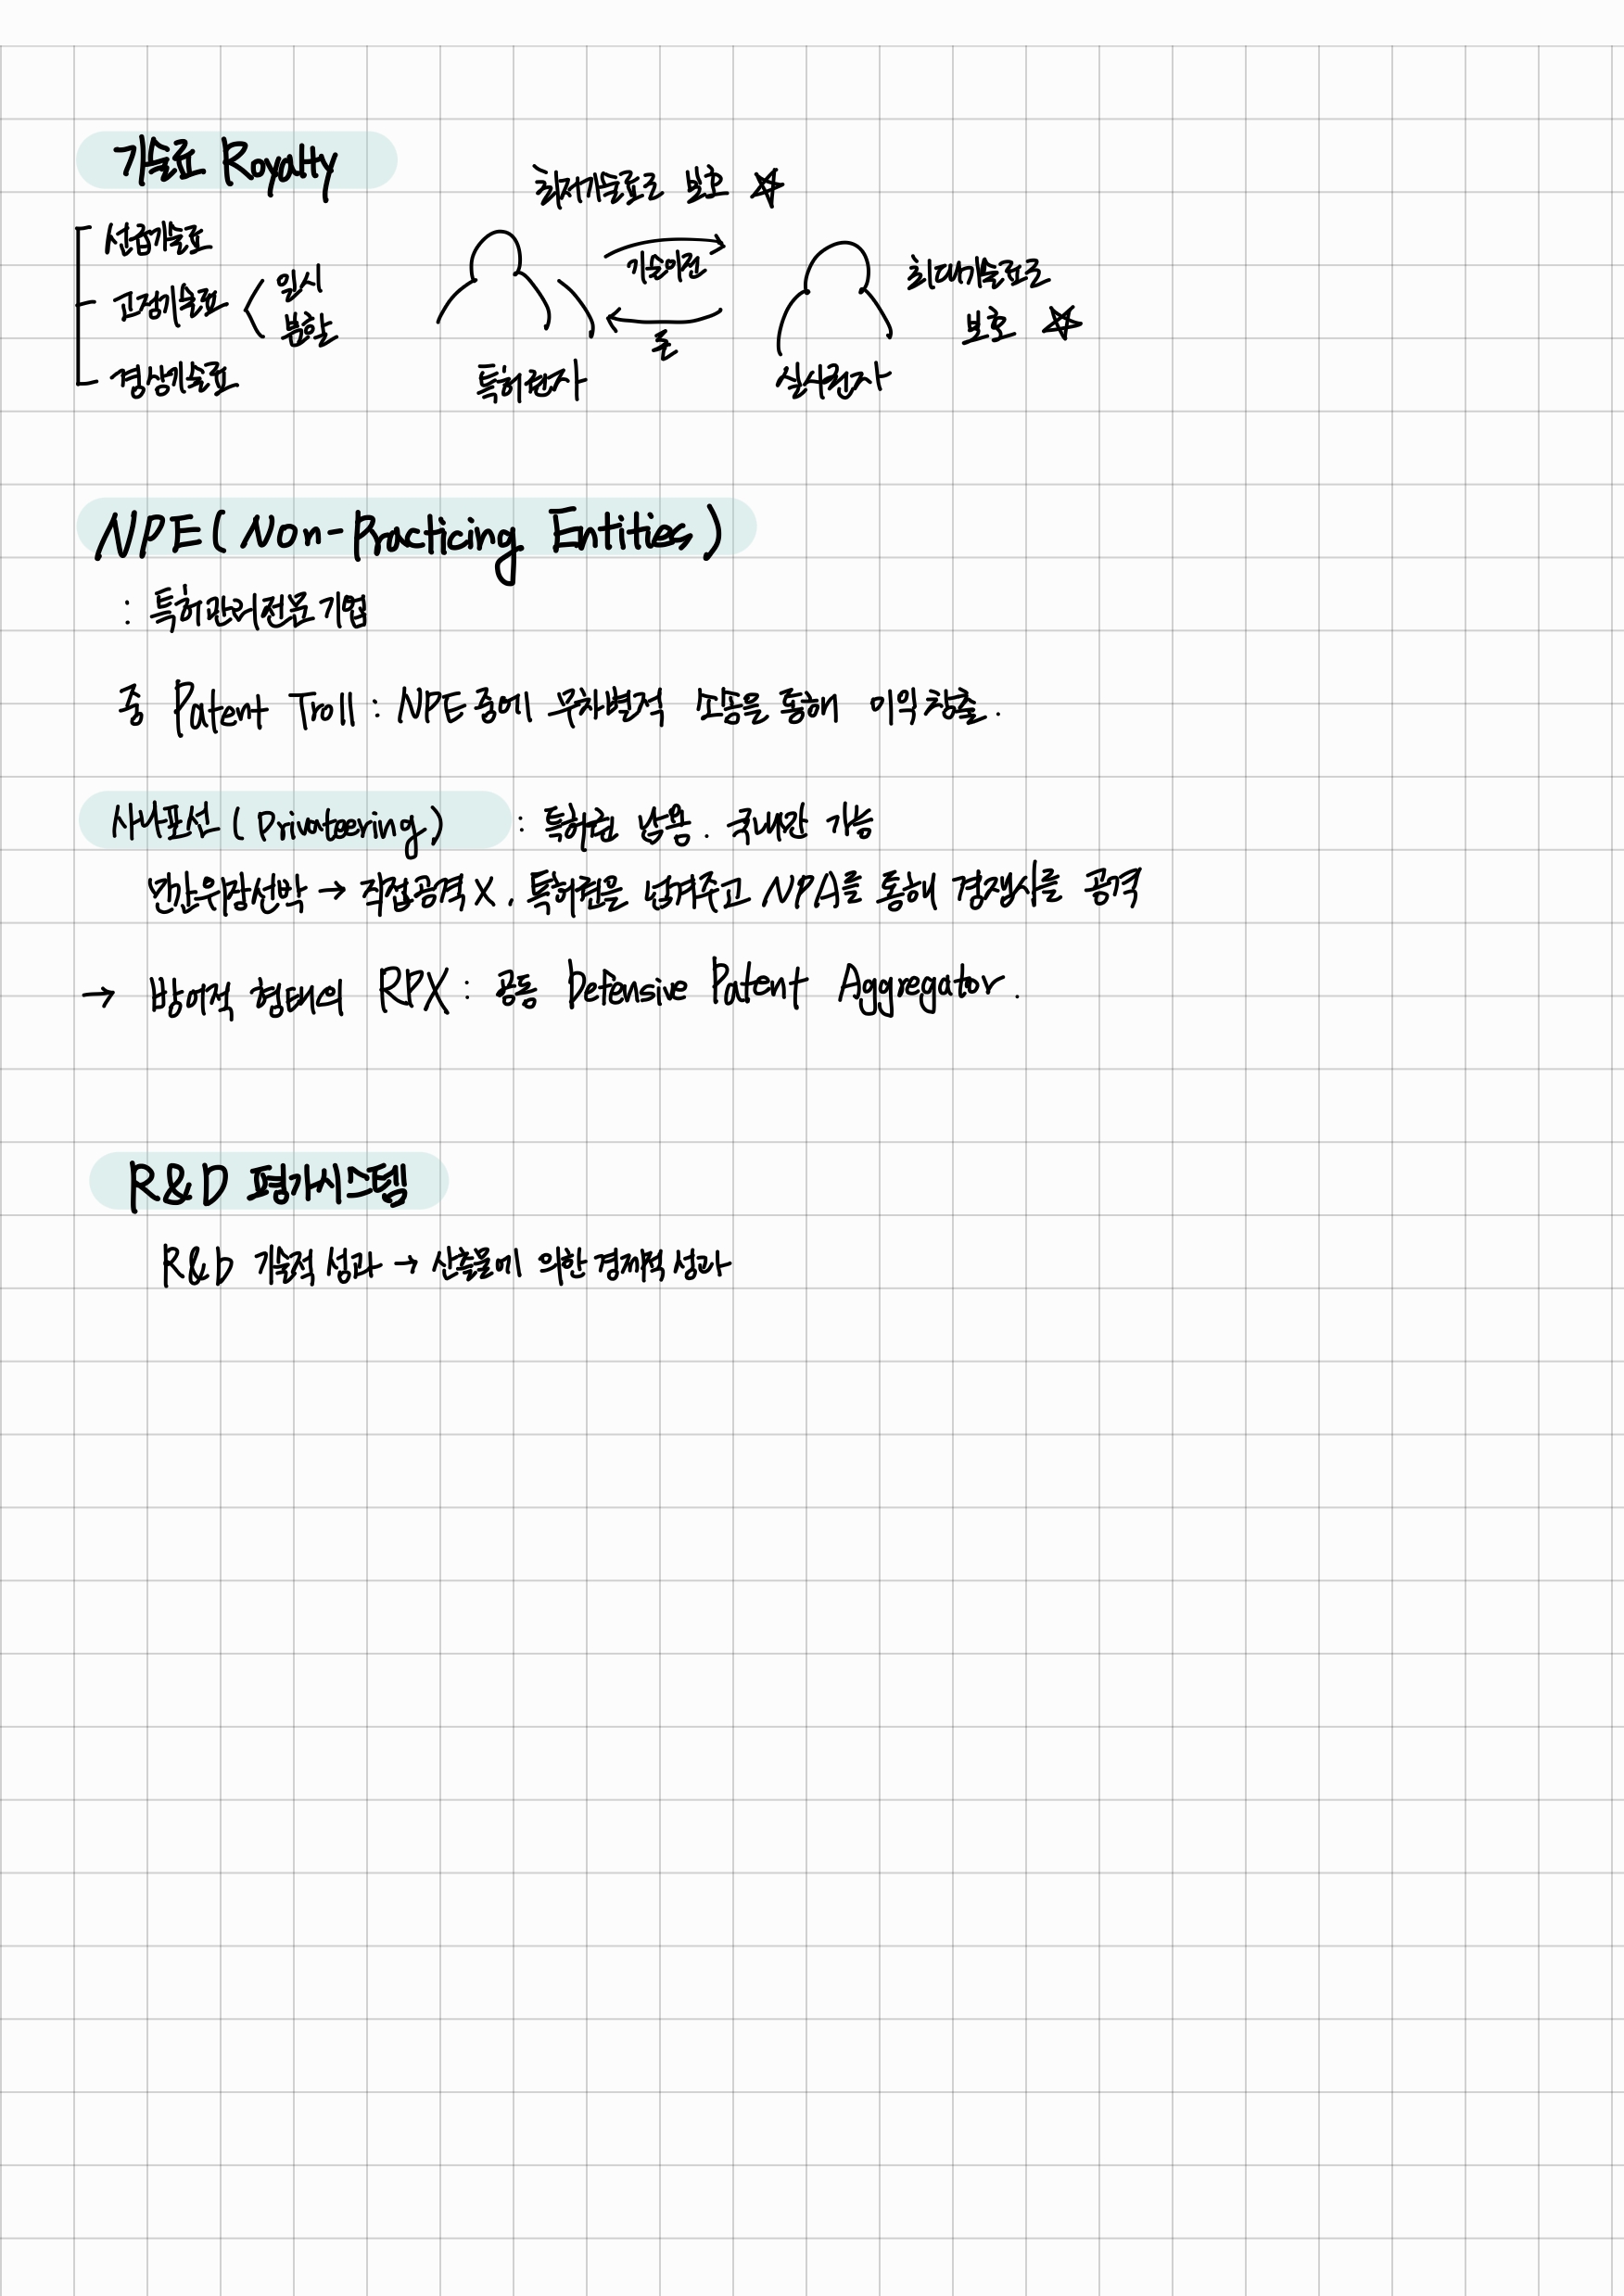 기술료 Royalty
최저기술료로 보호 ☆
선급기술료
고정기술료 < 일시
분할
경상기술료
기술이전
돈
특허권자
실시권자
최대기술료로
보호 ☆
NPE (Non-Practicing Entities)
: 특허관리전문기업
중 Patent Troll : NPE 중에 무차별적 소송을 통해 이익창출.
사나포선 (Privateering) : 특허권 남용. 국내만 가능
민간위장선박 → 직접공격 X, 특허권을 넘겨주고 NPA를 통해 경쟁사를 공격
→ 방어적 형태의 RPX : 공동 Defensive Patent Aggregator.
R&D 평가시스템
R&D 기술적 성과 → 산출물에 의한 경제적 성과